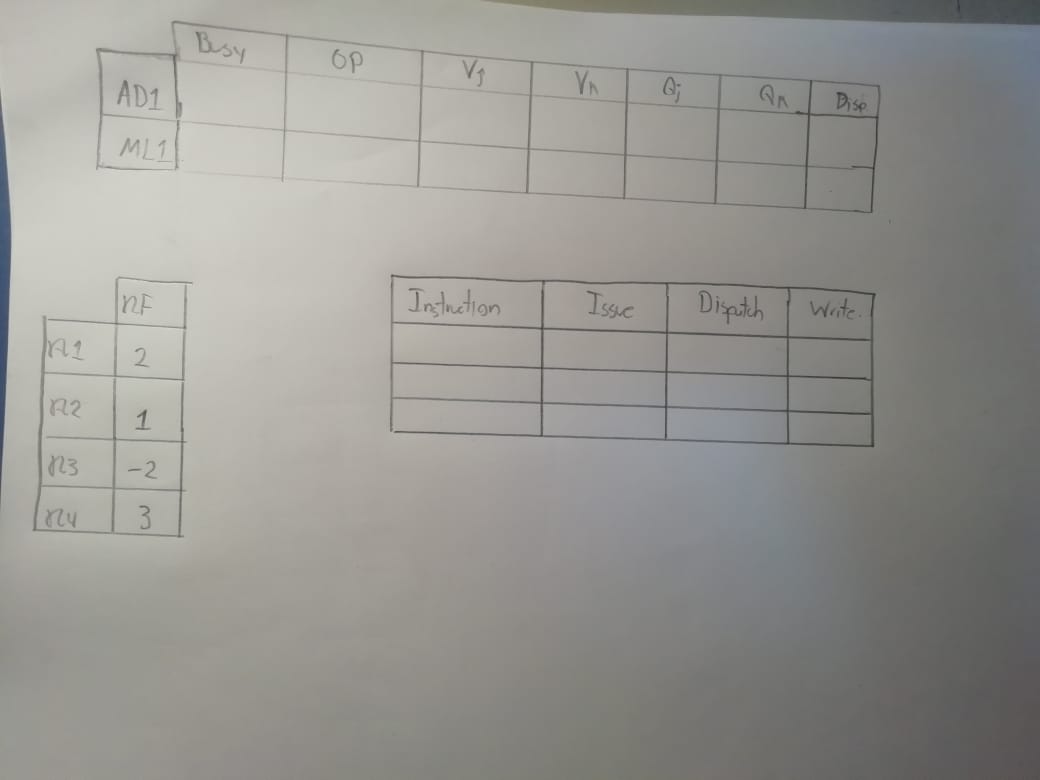 Busy OP Vj Vk Qj Qk Disp
AD1
ML1
RF
R1 2
R2 1
R3 -2
R4 3
Instruction Issue Dispatch Write.